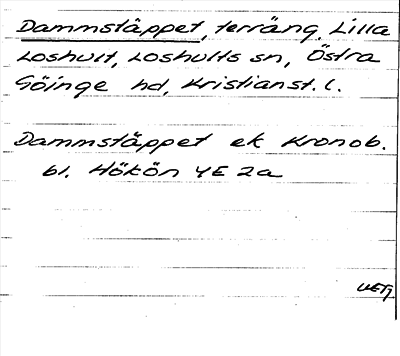 Dammstäppet, terräng, Lilla
Loshult, Loshults sn, Östra
Göinge hd, Kristianst. l.
Dammstäppet ek Kronob.
bl. Hökön 4E 2a